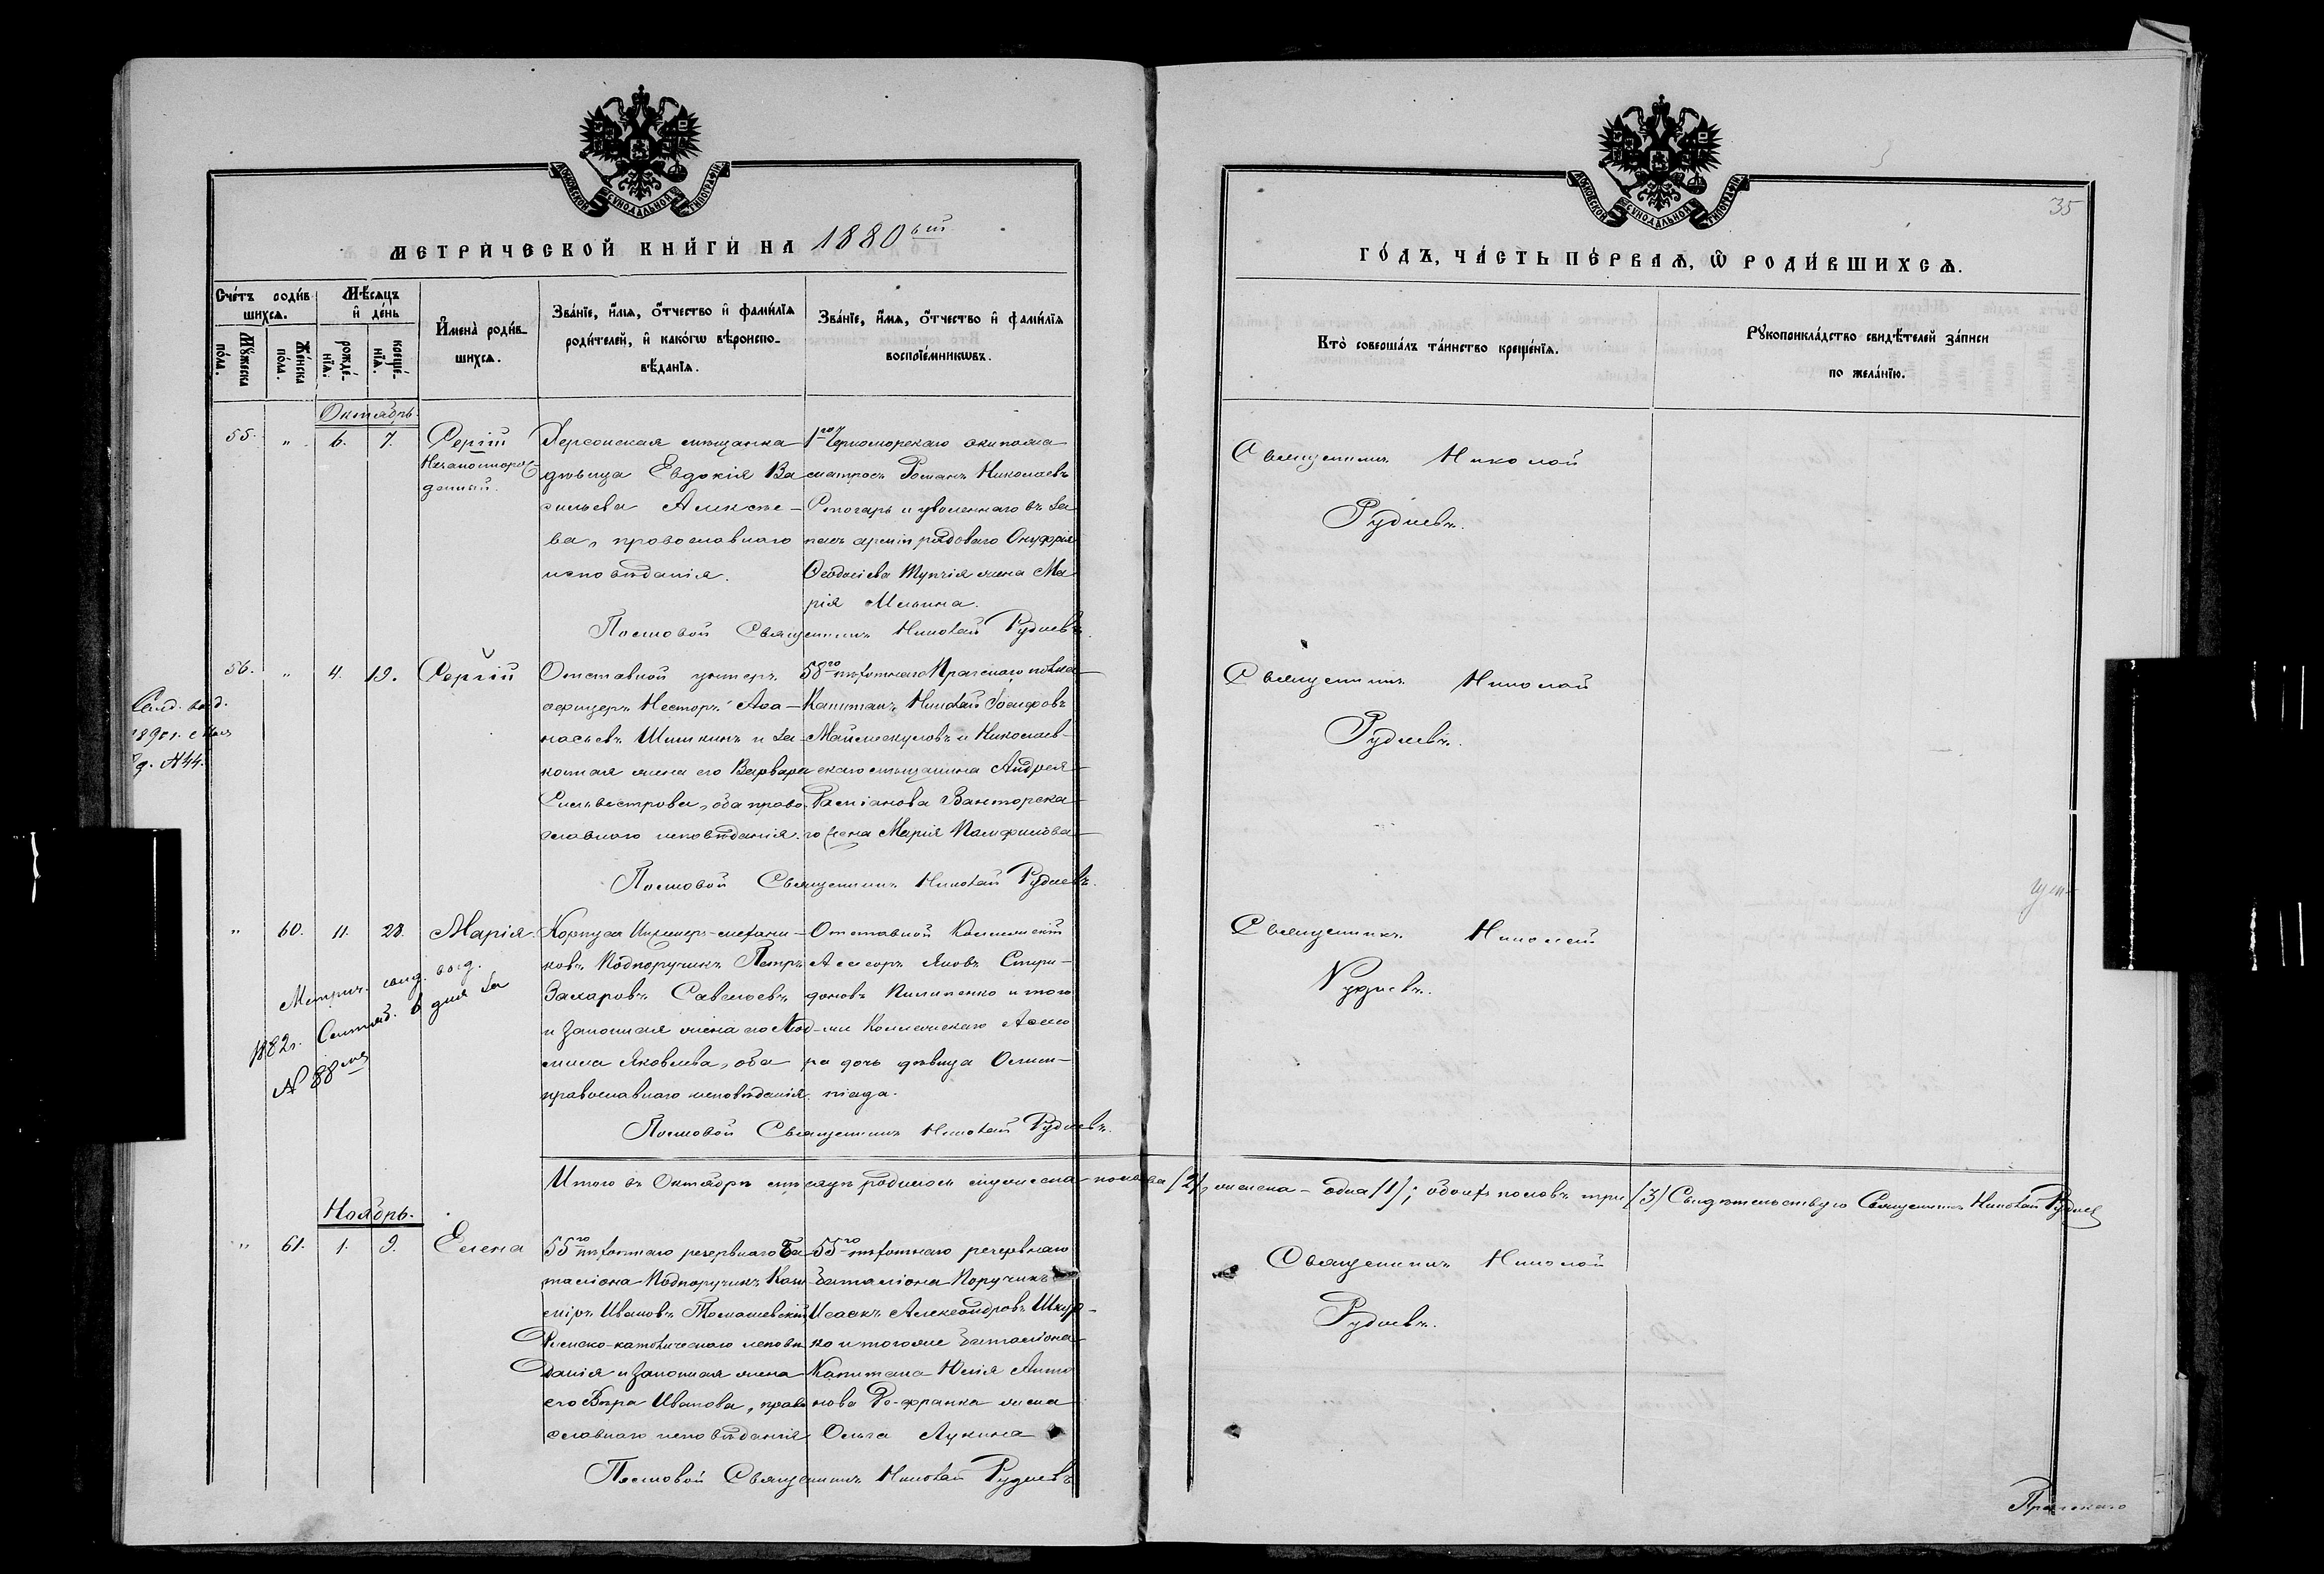 МОСКОВСКОЙ СѴНОДАЛЬНОЙ ТИПОГРАФІИ
МЕТРИ́ЧЕСКОЙ КНИ́ГИ НА 1880ый
Сче́тъ роди́вшихсѧ.
Мѣ́сѧцъ и҆ де́нь
Мꙋ́жеска по́ла.
Же́нска по́ла.
рожде́нїѧ:
креще́нїѧ.
И҆мена̀ роди́вшихсѧ.
Зва́нїе, и҆́мѧ, ѻ҆́тчество и҆ фами́лїѧ
роди́телей, и҆ како́гѡ вѣроиспо-
вѣ́данїѧ.
Зва́нїе, и҆́мѧ, ѻ҆́тчество и҆ фами́лїѧ
воспрїе́мникѡвъ.
Октябрь.
55. „ 6. 7. Сергій
Незаконнорож-
денный.
Херсонская мѣщанка
дѣвица Евдокія Ва
сильева Алексѣе-
ва, православнаго
исповѣданія.
1го Черноморскаго экипажа
матросъ Романъ Николаевъ
и уволеннаго въ за
пасъ арміи рядоваго Онуфрія
Ѳеодосіева жена Ма
рія Ильина.
Полковой Священникъ Николай Рудневъ.
56. „ 4. 19. Сергій
Отставной унтеръ
офицеръ Несторъ Аѳа-
насьевъ Шишкинъ и за-
конная жена его Варвара
Сильвестрова, оба право-
славнаго исповѣданія.
58го пѣхотнаго Пражскаго полка
Капитанъ Николай Іосифовъ
и Николаев-
скаго мѣщанина Андрея
жена Марія Памфилова
Полковой Священникъ Николай Рудневъ.
№ 44.
„ 60. 11. 28. Марія.
Корпуса Инженеръ-механи-
ковъ Подпоручикъ Петръ
Захаровъ Савельевъ
и законная жена его Люд-
мила Яковлева, оба
православнаго исповѣданія.
Отставной Коллежскій
Ассесоръ Яковъ Спири-
доновъ Пилипенко и того
же Коллежскаго Ассесо
ра дочь дѣвица Олим-
піада.
Метрич. свид. выд.
1882г. Сентяб. 6 дня за
№ 88мъ
Полковой Священникъ Николай Рудневъ.
Итого въ Октябрѣ мѣсяцѣ родилось мужеска пола два (2), женска - одна (1); обоихъ половъ три (3) Свидѣтельствую Священникъ Николай Руднев
Ноябрь.
„ 61. 1. 9. Елена
55го пѣхотнаго резервнаго Ба
таліона Подпоручикъ Кази
міръ Ивановъ Томашевскій
Римско-католическаго исповѣ
данія и законная жена
его Вѣра Иванова, право
славнаго исповѣданія
55го пѣхотнаго резервнаго
баталіона Поручикъ
Исаакъ Александровъ Шкур-
ко и того же баталіона
Капитана Юлія Анто
нова Де-Франка жена
Ольга Лукина
Полковой Священникъ Николай Рудневъ
МОСКОВСКОЙ СѴНОДАЛЬНОЙ ТИПОГРАФІИ
35
ГО́ДЪ, ЧА́СТЬ ПЕ́РВАѦ, Ѡ҆ РОДИ́ВШИХСѦ.
Кто̀ соверша́лъ та́инство креще́нїѧ.
Рꙋкоприкла́дство свидѣ́телей за́писи
по жела́нїю.
Священникъ Николай
Рудневъ.
Священникъ Николай
Рудневъ.
Священникъ Николай
Рудневъ.
Священникъ Николай
Рудневъ.
Пражскаго